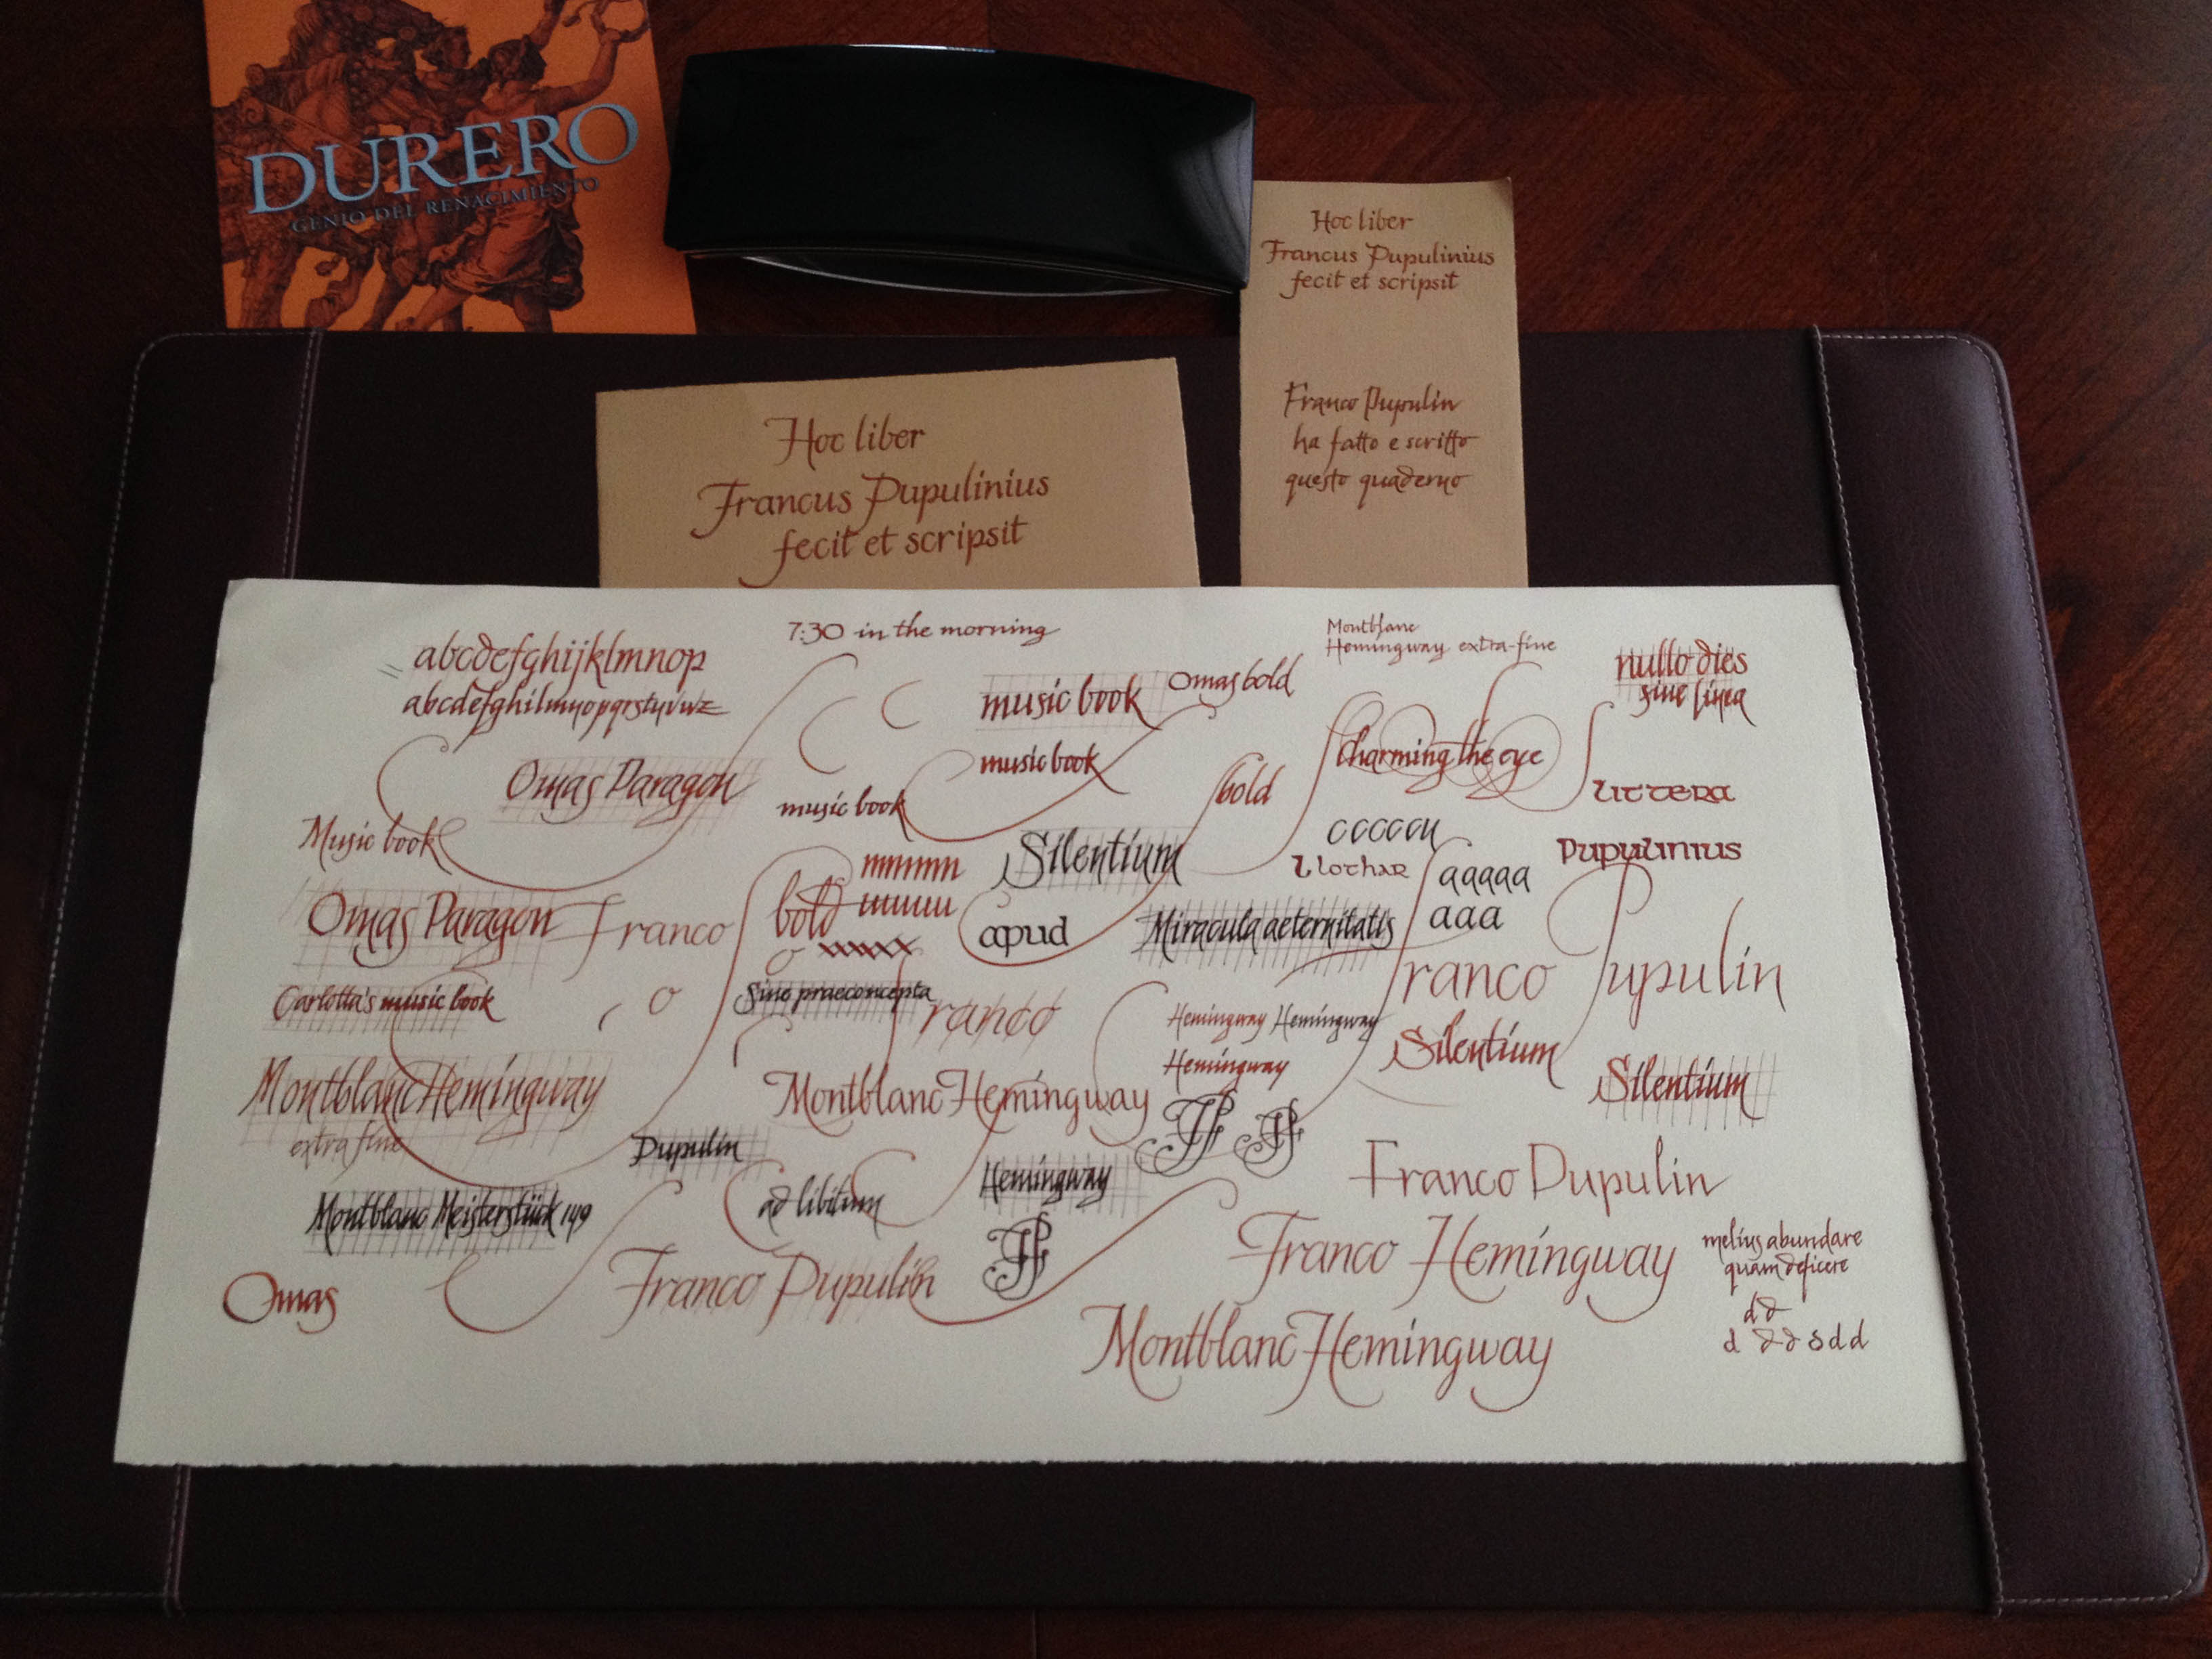 DURERO
GENIO DEL RENACIMIENTO
Hoc liber
Francus Pupulinius
fecit et scripsit
Franco Pupulin
ha fatto e scritto
questo quaderno
Hoc liber
Francus Pupulinius
fecit et scripsit
abcdefghijklmnop
abcdefghilmnopqrstuvwz
7:30 in the morning
Montblanc
Hemingway extra-fine
nullo dies
sine linea
music book
Omas bold
Omas Paragon
music book
charming the eye
bold
music book
littera
Music book
cccccu
Silentium
Llothar
Pupulinius
mmmm
aaaaa
Omas Paragon
Franco
bold
uuuuu
apud
Miracula aeternitatis
aaa
o
xxxxx
Franco Pupulin
Carlotta's music book
o
Sine praeconcepta
Franco
Hemingway Hemingway
Silentium
Hemingway
Silentium
Montblanc Hemingway
extra fine
Montblanc Hemingway
Pupulin
Franco Pupulin
Hemingway
ad libitum
Montblanc Meisterstück 149
Franco Hemingway
melius abundare
quam deficere
Omas
Franco Pupulin
Montblanc Hemingway
d d
d d d s d d